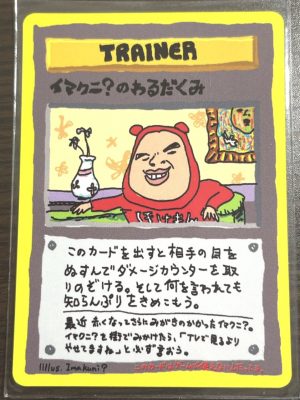 TRAINER
イマクニ？のわるだくみ
ぽけもん
このカードを出すと相手の目を
ぬすんでダメージカウンターを取
りのぞける。そして何を言われても
知らんぷりをきめこもう。
最近 赤くなってさらにみがきのかかったイマクニ？。
イマクニ？を街でみかけたら、「TVで見るより
やせてますね」と必ず言おう。
Illus. Imakuni?